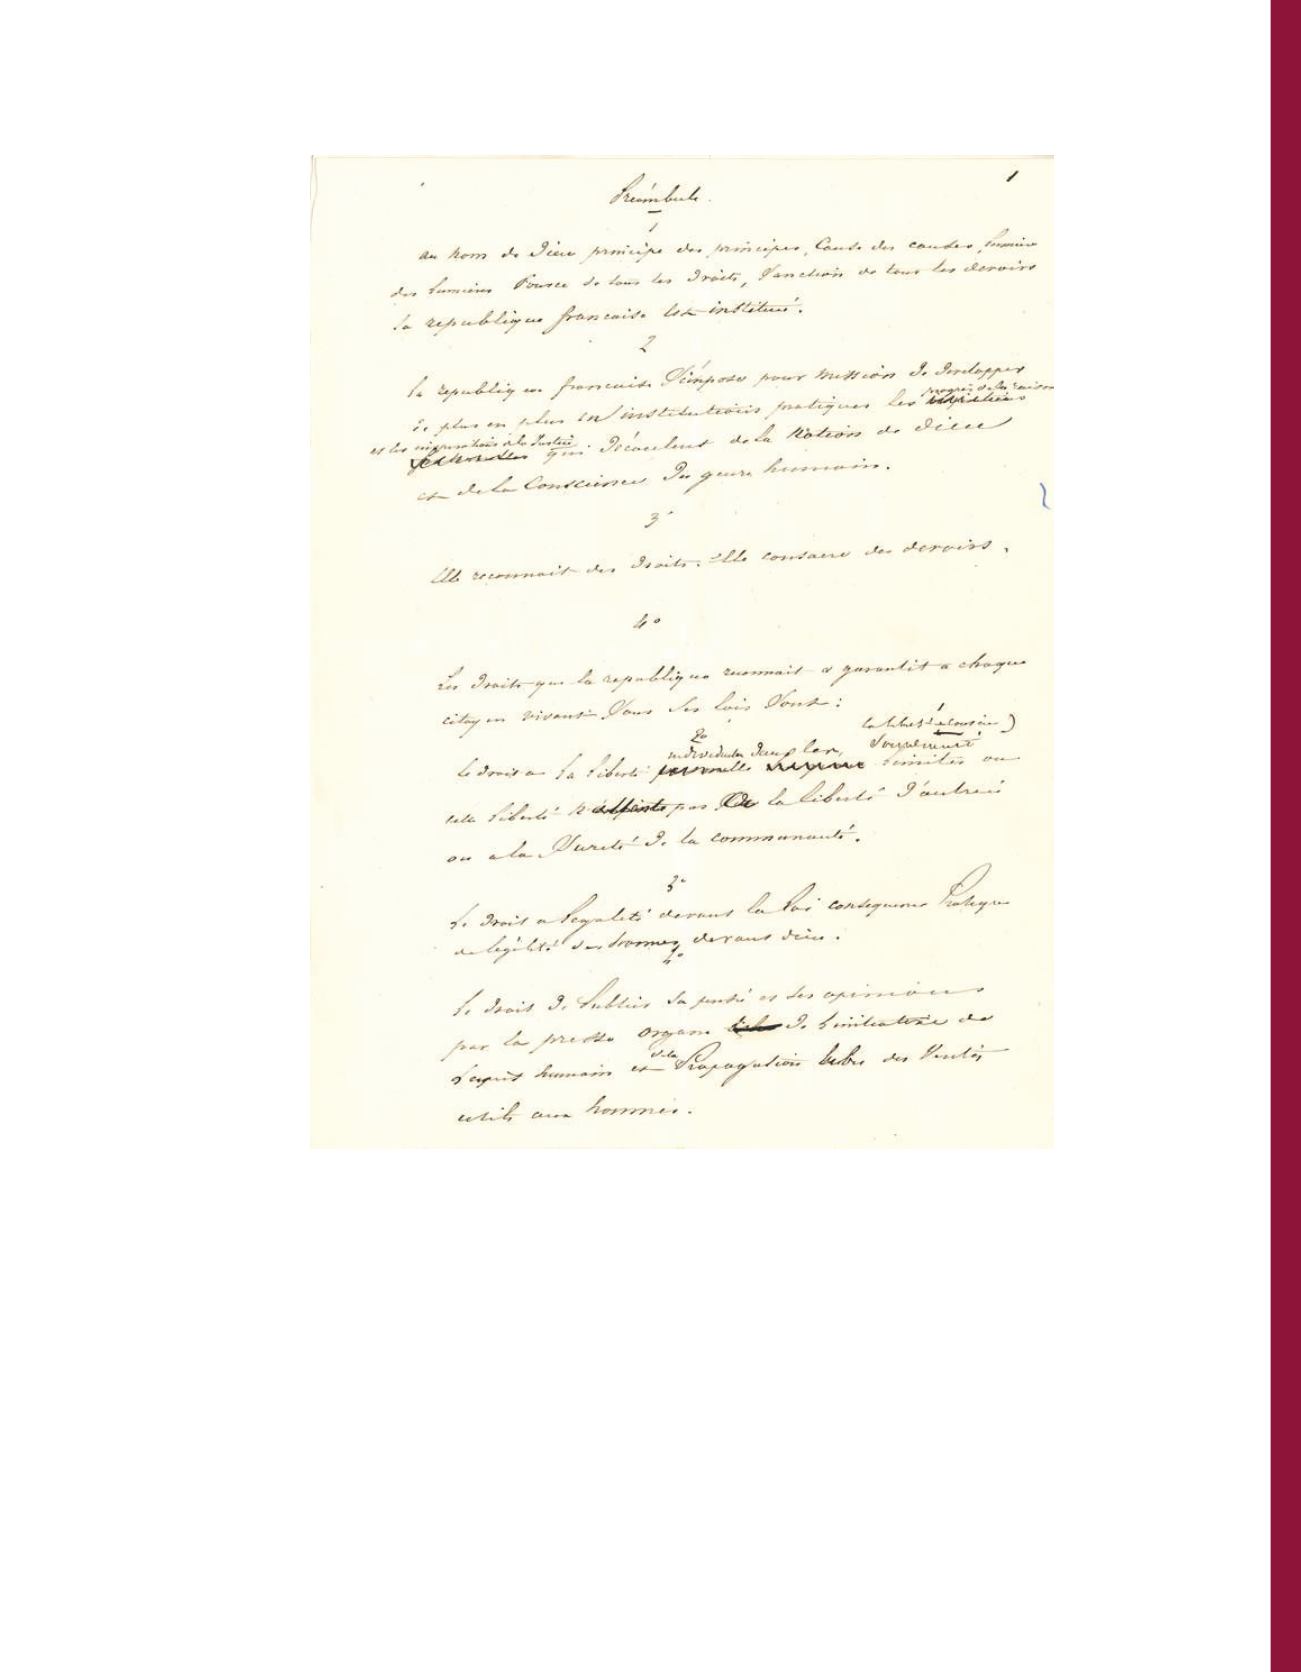 1
Préambule.
1
au nom de Dieu principe des principes, Cause des causes, lumière
des lumières Source de tous les Droits, Sanction de tous les devoirs
la republique francaise est institué.
2
la republique francaise S'impose pour mission de developper
progrès de la raison
de plus en plus en institutions pratiques les
et les inspirations de la Justice
qui Découlent de la Notion de Dieu
et de la Conscience du genre humain.
3°
Elle reconnait des droits. Elle consacre des devoirs.
4°
Les droits que la republique reconnait & garantit a chaque
citoyen vivant Sous Ses lois Sont :
la liberté
2°
individuelle
Le droit a la liberté personelle limites ou
cette liberté pas la liberté d'autrui
ou a la Sureté de la communauté.
3°
Le droit a l'egalité devant la Loi consequence Pratique
de l'égalité des hommes devant dieu.
4°
Le droit de Publier Sa pensé et Ses opinions
par la presse organe de l'initiative de
de la
L'esprit humain et Propagation libre des Verités
utils aux hommes.